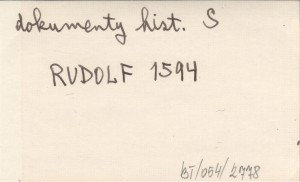 dokumenty hist. S
RUDOLF 1594
BT/054/2778